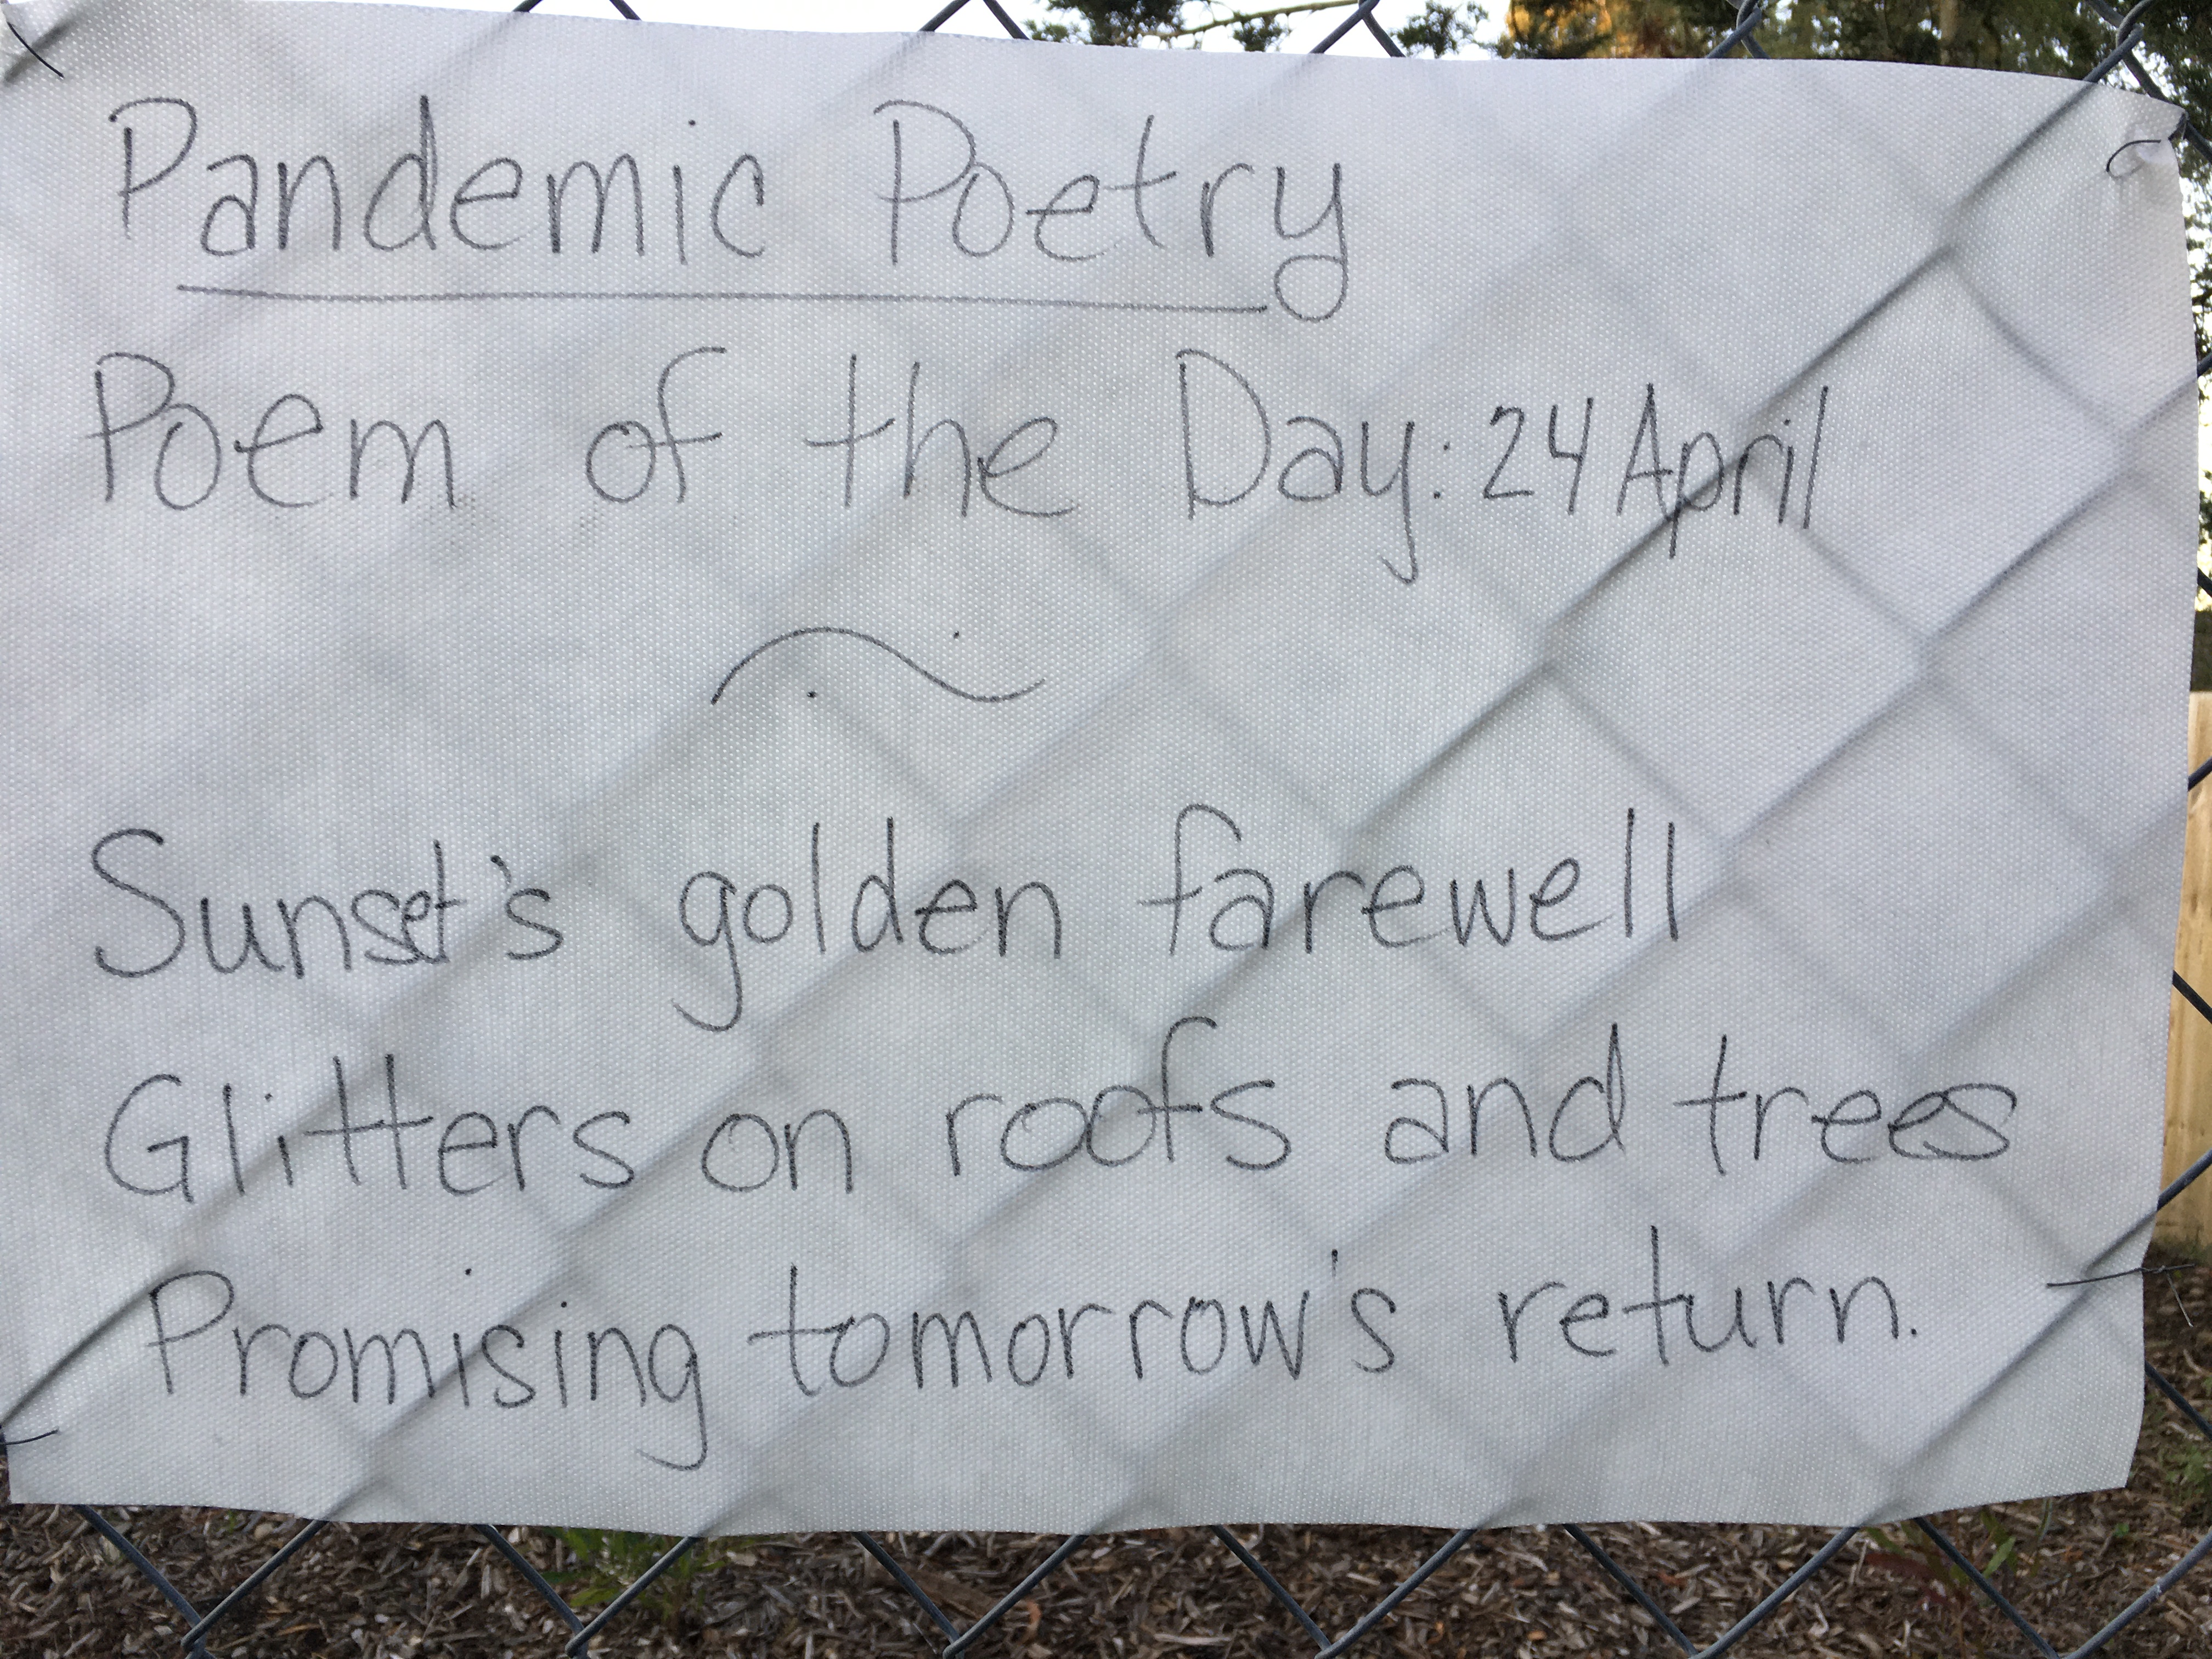 Pandemic Poetry
Poem of the Day: 24 April
Sunset's golden farewell
Glitters on roofs and trees
Promising tomorrow's return.